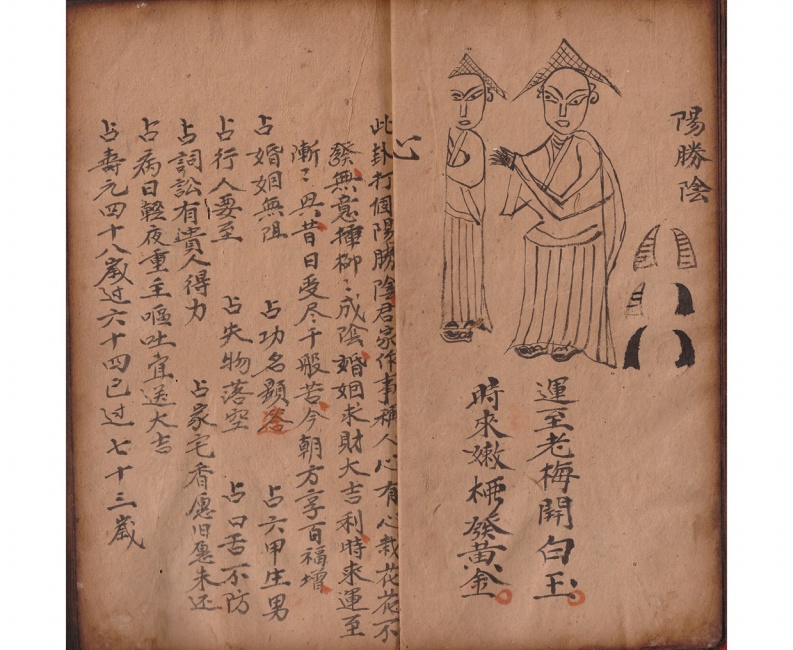 陽勝陰
運至老梅開白玉
時來嫩柳發黃金
此卦打個陽勝陰君家作事稱人心有心栽花花不
發無意揷柳〻成陰婚姻求財大吉利時來運至
漸〻興昔日受尽千般苦今朝方享百福增
占婚姻無阻 占功名顯答 占六甲生男
占行人要至 占失物落空 占口舌不防
占詞訟有貴人得力 占家宅香愿旧愿未还
占病日輕夜重主嘔吐宜送大吉
占壽元四十八歲过六十四已过七十三歲
心